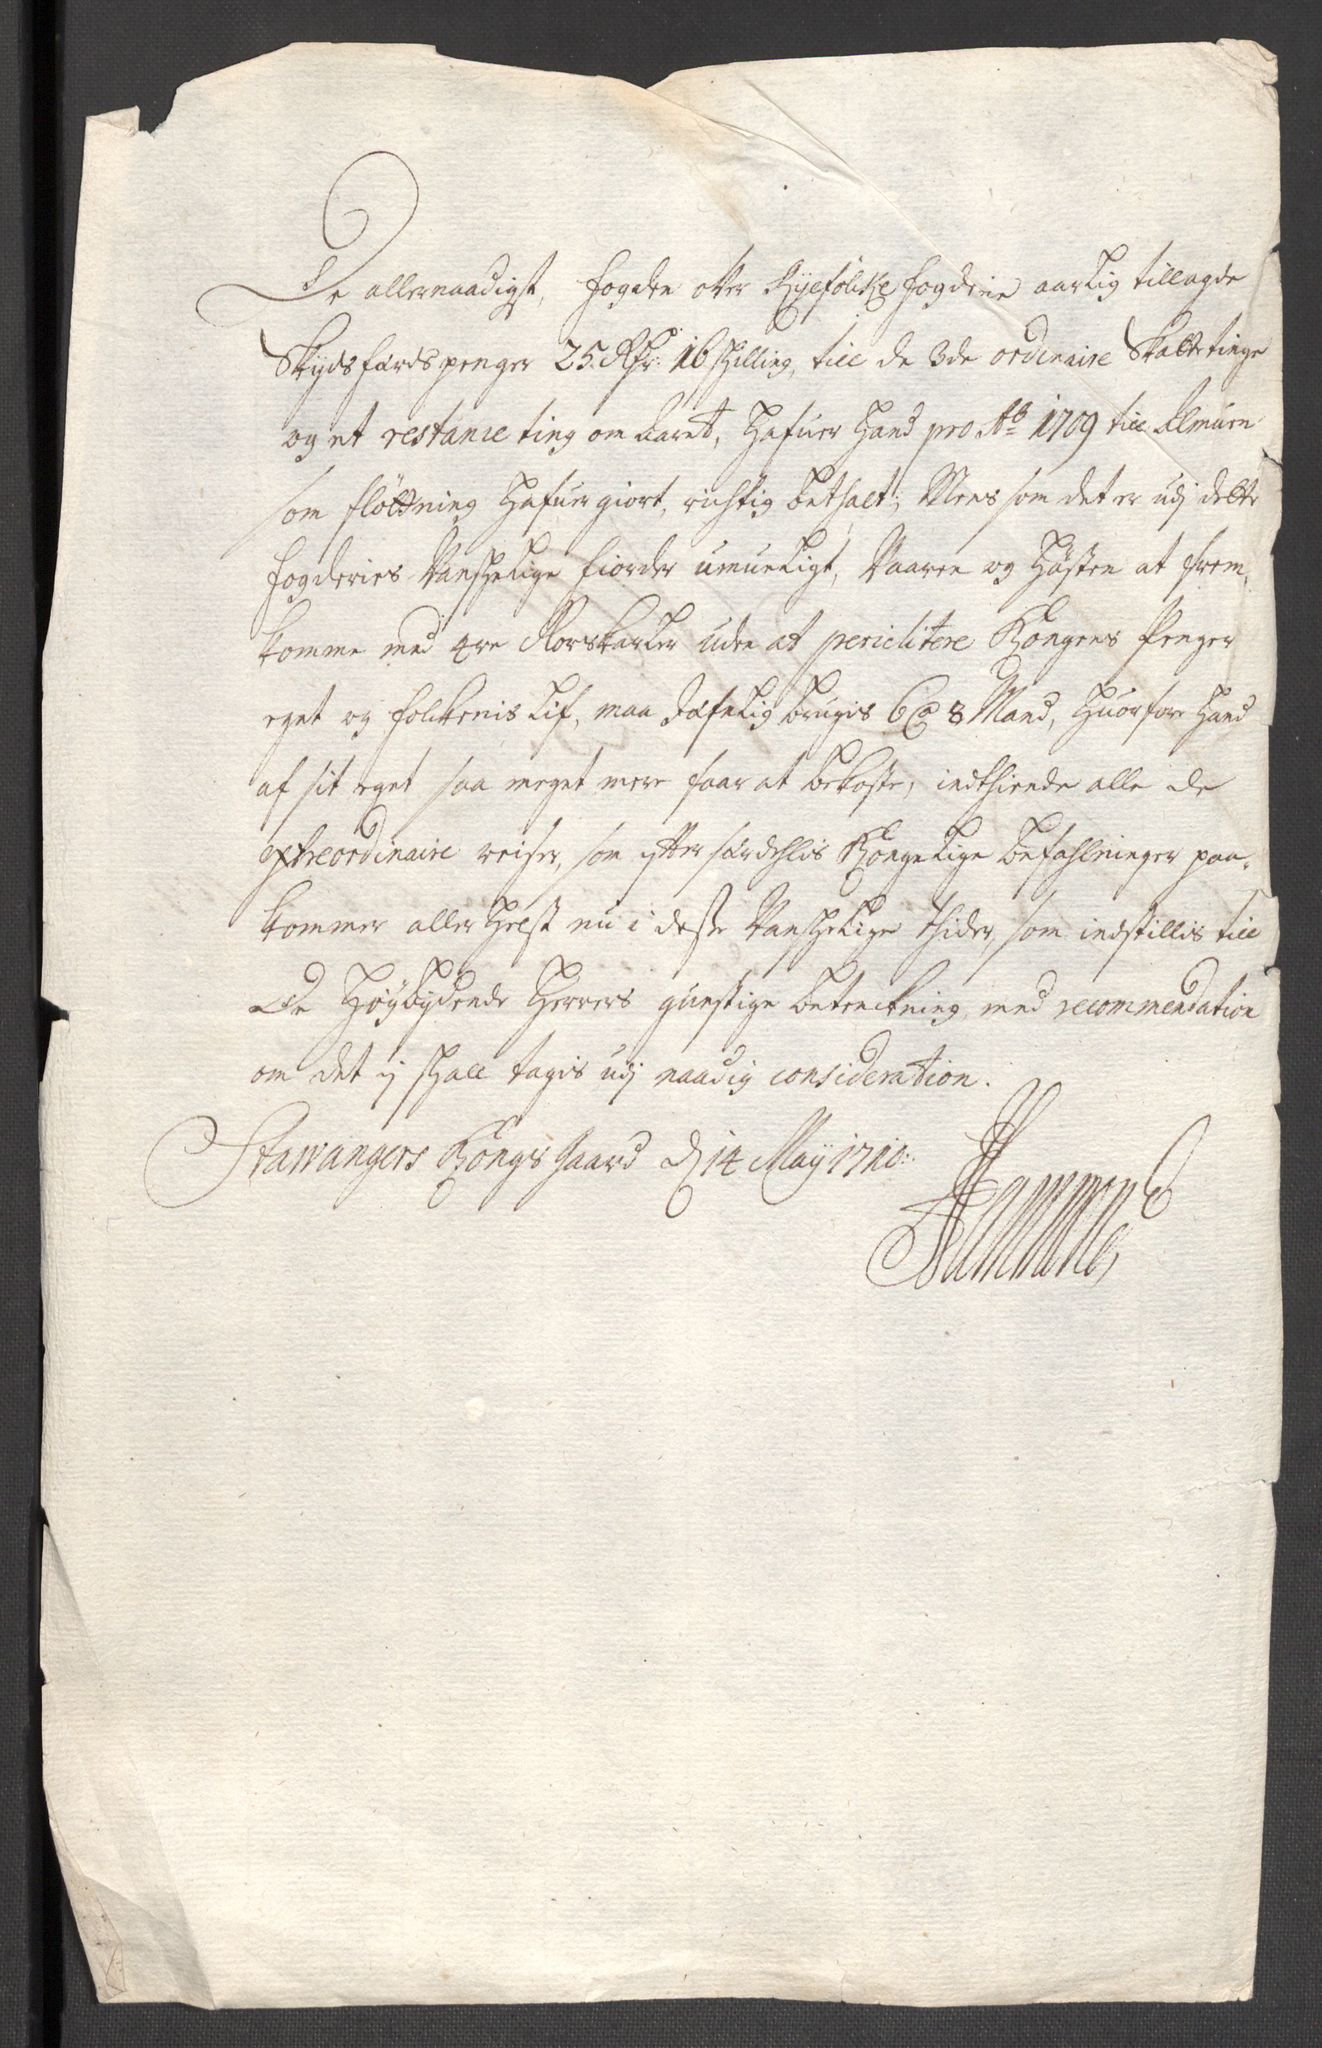 De allernaadigst, fogden ofver Ryefölke fogderie aarlig tillagde
Skydsfærds penger 25 Rdr: 16 skilling, till de 3de ordinaire Skattetinge
og et restance ting om aaret, hafuer hand pro Ao 1709 till Almuen
som flöttning hafuer giort, richtig bethalt; Mens som det er udj dette
fogderies vanschelige fiorder umueligt, Vaaren og Hösten at frem-
komme med 4re Rorskarler uden at periclitere Kongens Penger
eget og folckenis lif, maa Jefnlig brugis 6 a 8 Mand, huorfore hand
af sit eget saa meget mere faar at bekoste, indthiende alle de
extraordinaire reiser, som efter særdehlis Kongelige befahlninger paa-
kommer allerhelst nu i desse vanschelige thider, som indstillis till
De Höybydende Herrers gunstige betenckning, med recommendation
om det ej schall tagis udj naadig consideration.
Stawangers Kongsgaard dj 14 May 1710: